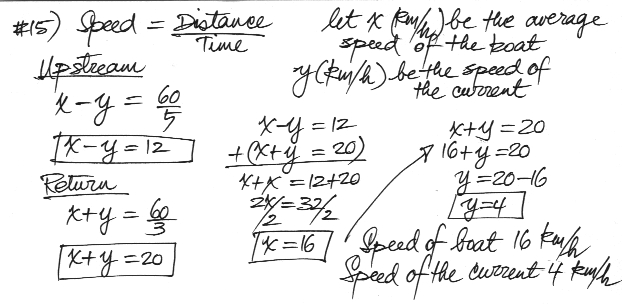 #15) Speed = Distance / Time
let x (km/h) be the average
speed of the boat
y (km/h) be the speed of
the current
Upstream
x - y = 60/5
x - y = 12
Return
x + y = 60/3
x + y = 20
x - y = 12
+ (x + y = 20)
x + x = 12 + 20
2x/2 = 32/2
x = 16
x + y = 20
16 + y = 20
y = 20 - 16
y = 4
Speed of boat 16 km/h
Speed of the current 4 km/h